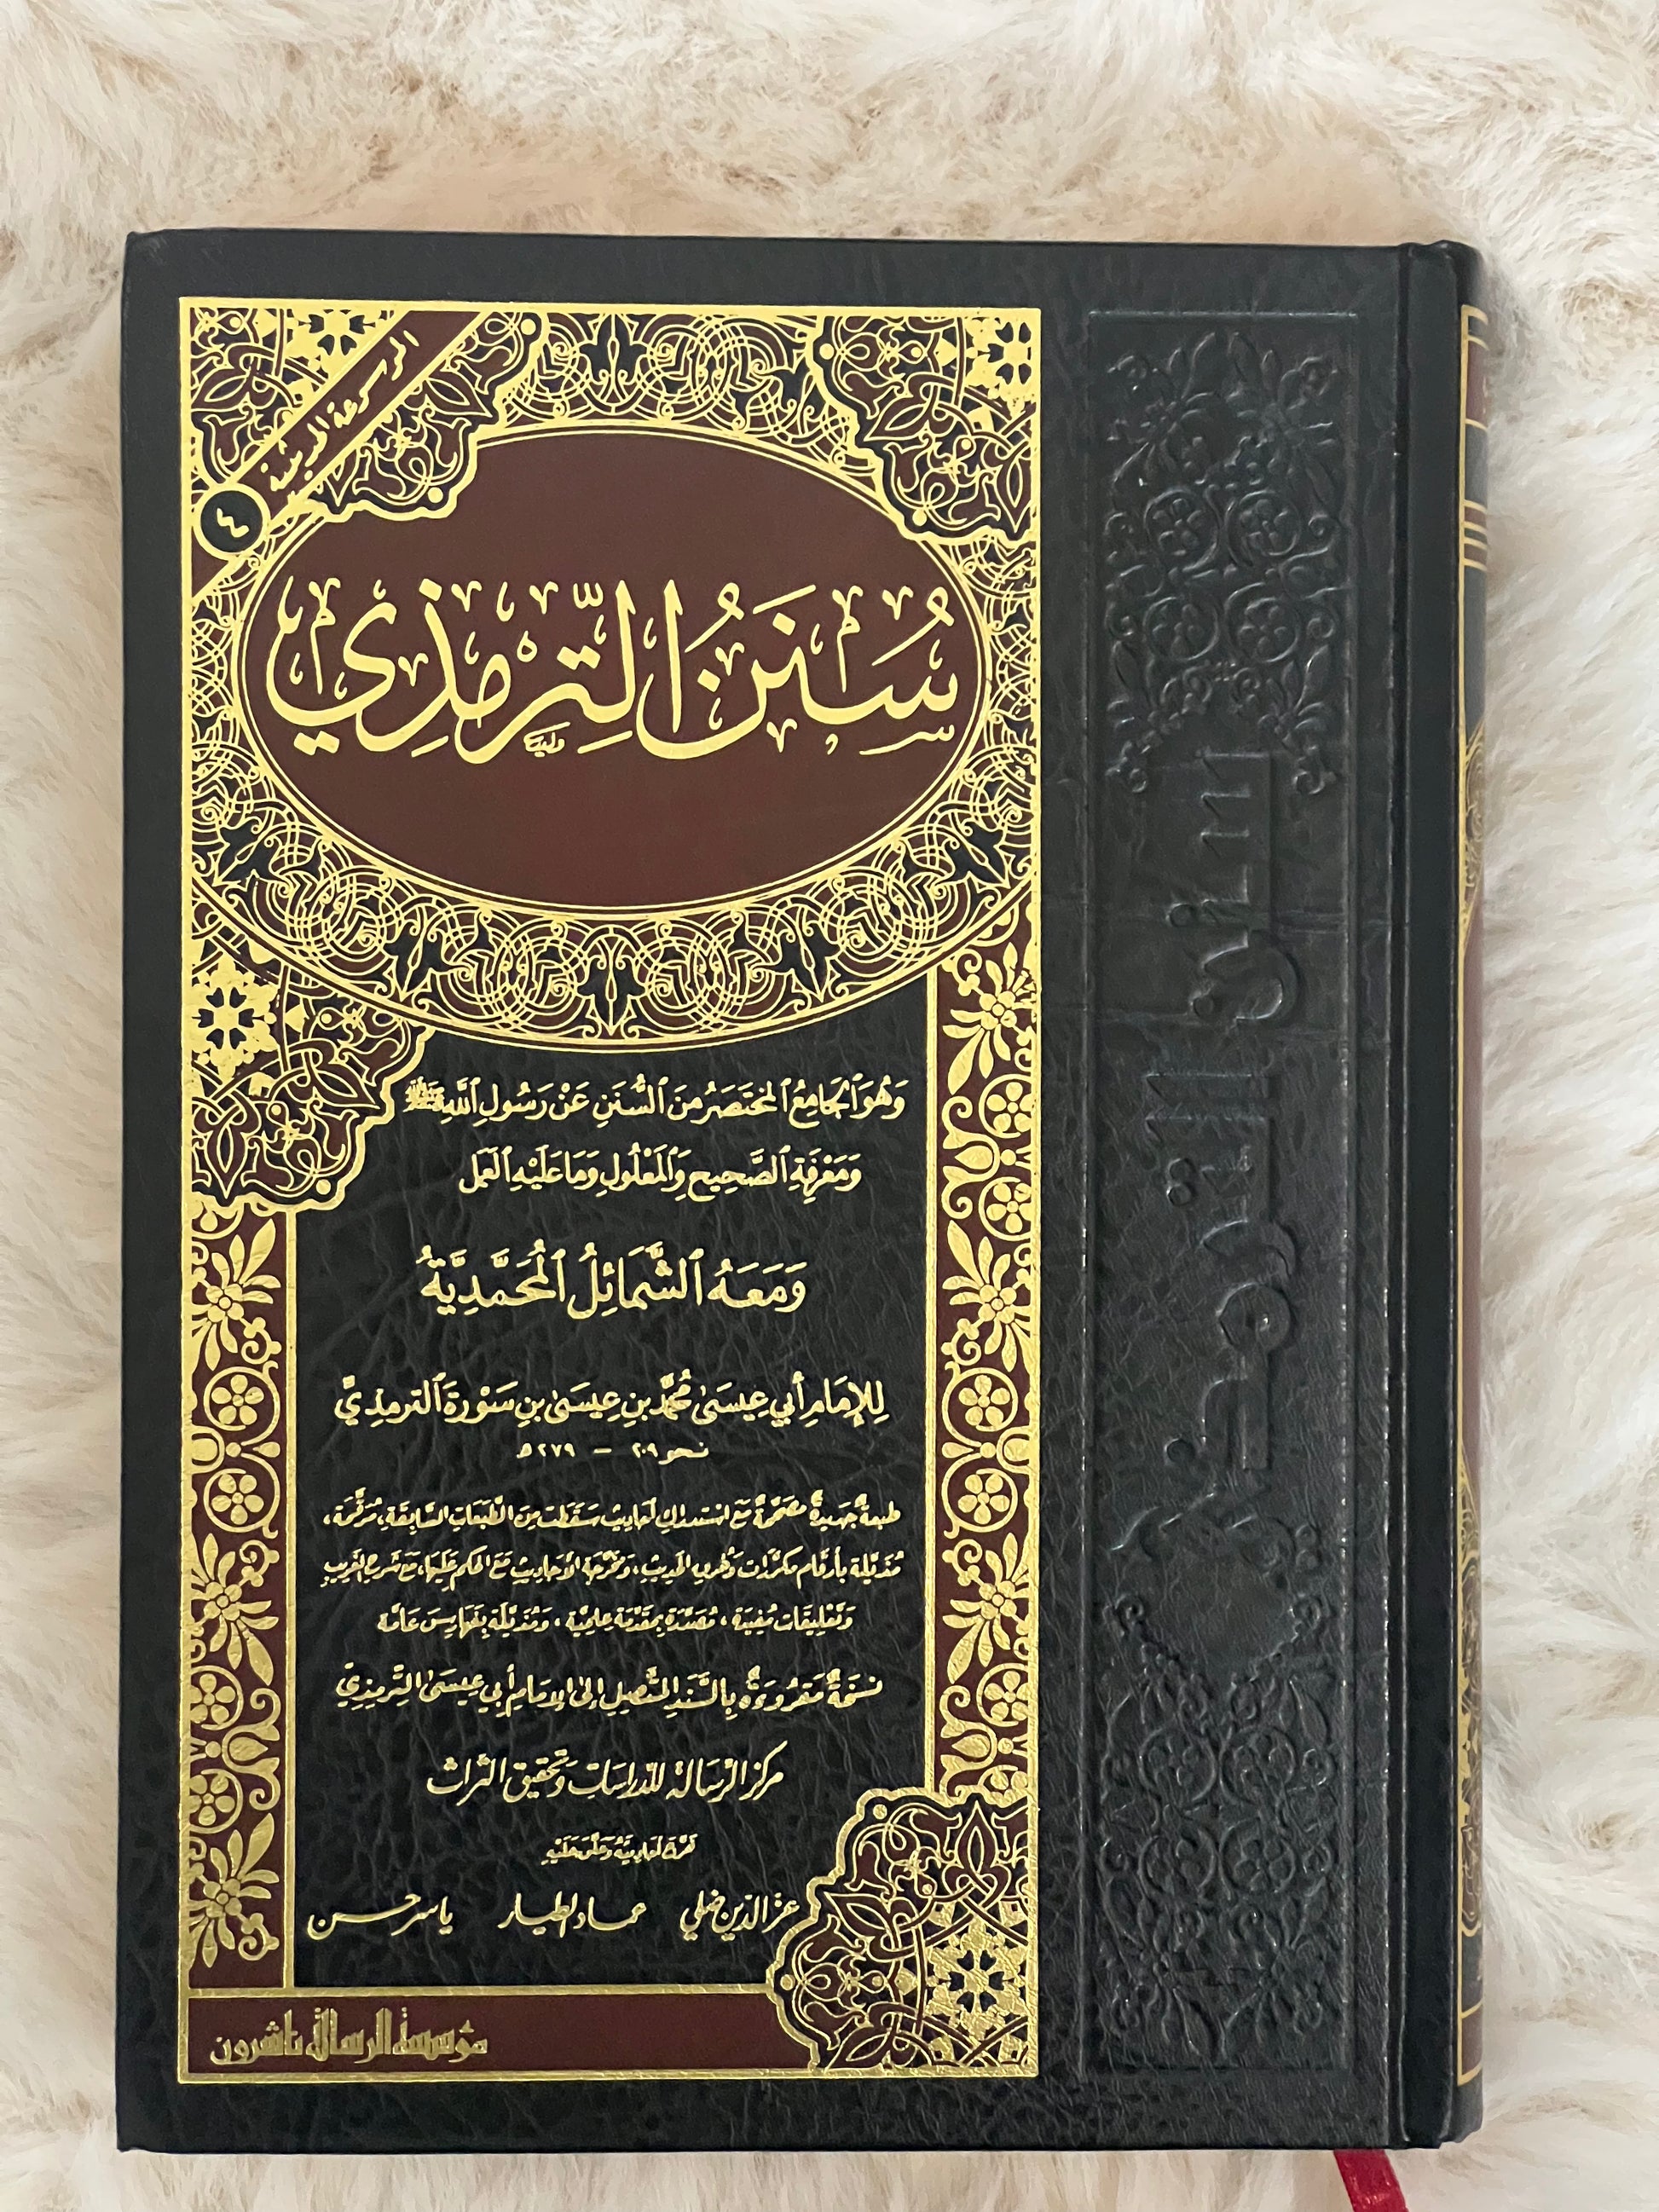 الموسوعة الحديثية
٤
سُنَنُ التِّرْمِذِي
وَهُوَ ٱلْجَامِعُ ٱلْمُخْتَصَرُ مِنَ ٱلسُّنَنِ عَنْ رَسُولِ ٱللَّهِ ﷺ
وَمَعْرِفَةِ ٱلصَّحِيحِ وَٱلْمَعْلُولِ وَمَا عَلَيْهِ ٱلْعَمَل
وَمَعَهُ ٱلشَّمَائِلُ ٱلْمُحَمَّدِيَّةُ
لِلإِمَامِ أَبِي عِيسَىٰ مُحَمَّدِ بنِ عِيسَىٰ بنِ سَوْرَةَ ٱلترمِذِيِّ
نحو ٢٠٩ – ٢٧٩ ه
طبعةٌ جَديدةٌ مصَحَّحةٌ مَعَ استدراكِ أحاديثَ سَقَطت مِنَ الطَّبعَاتِ السَّابِقَةِ، مُرَقَّمَة،
مُذَيَّلة بأرقام مكرَّرات وَأطراف الحَديثِ، وَمخَرَّجَة الأحَاديثِ مَعَ الحكم عَلَيهَا، مَعَ شَرح الغَريبِ
وَتَعْلِيقَات مُفِيدَة، مُصَدَّرَة بِمقَدِّمَة عِلميَّة، وَمُذَيَّلَة بِفَهَارِسَ عَامَّة
نسخَةٌ مَقرُوءَةٌ بِالسَّنَدِ المتَّصِلِ إلى الإمَامِ أبي عِيسَىٰ التِّرمِذِيِّ
مركز الرّسَالة للدّراسَات وَتحقيق التّراث
خرّج أحاديثه وعلّق عليه
عزّ الدّين ضلي عماد الطيار ياسر حسن
مؤسسة الرسالة ناشرون
سنن الترمذي